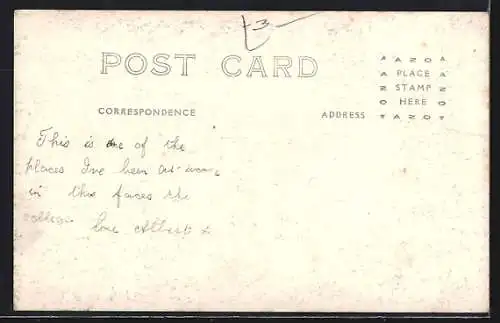 3
POST CARD
AZO
PLACE
STAMP
HERE
AZO
CORRESPONDENCE
ADDRESS
This is one of the
places I've been at
in this faces the
college love Albert x